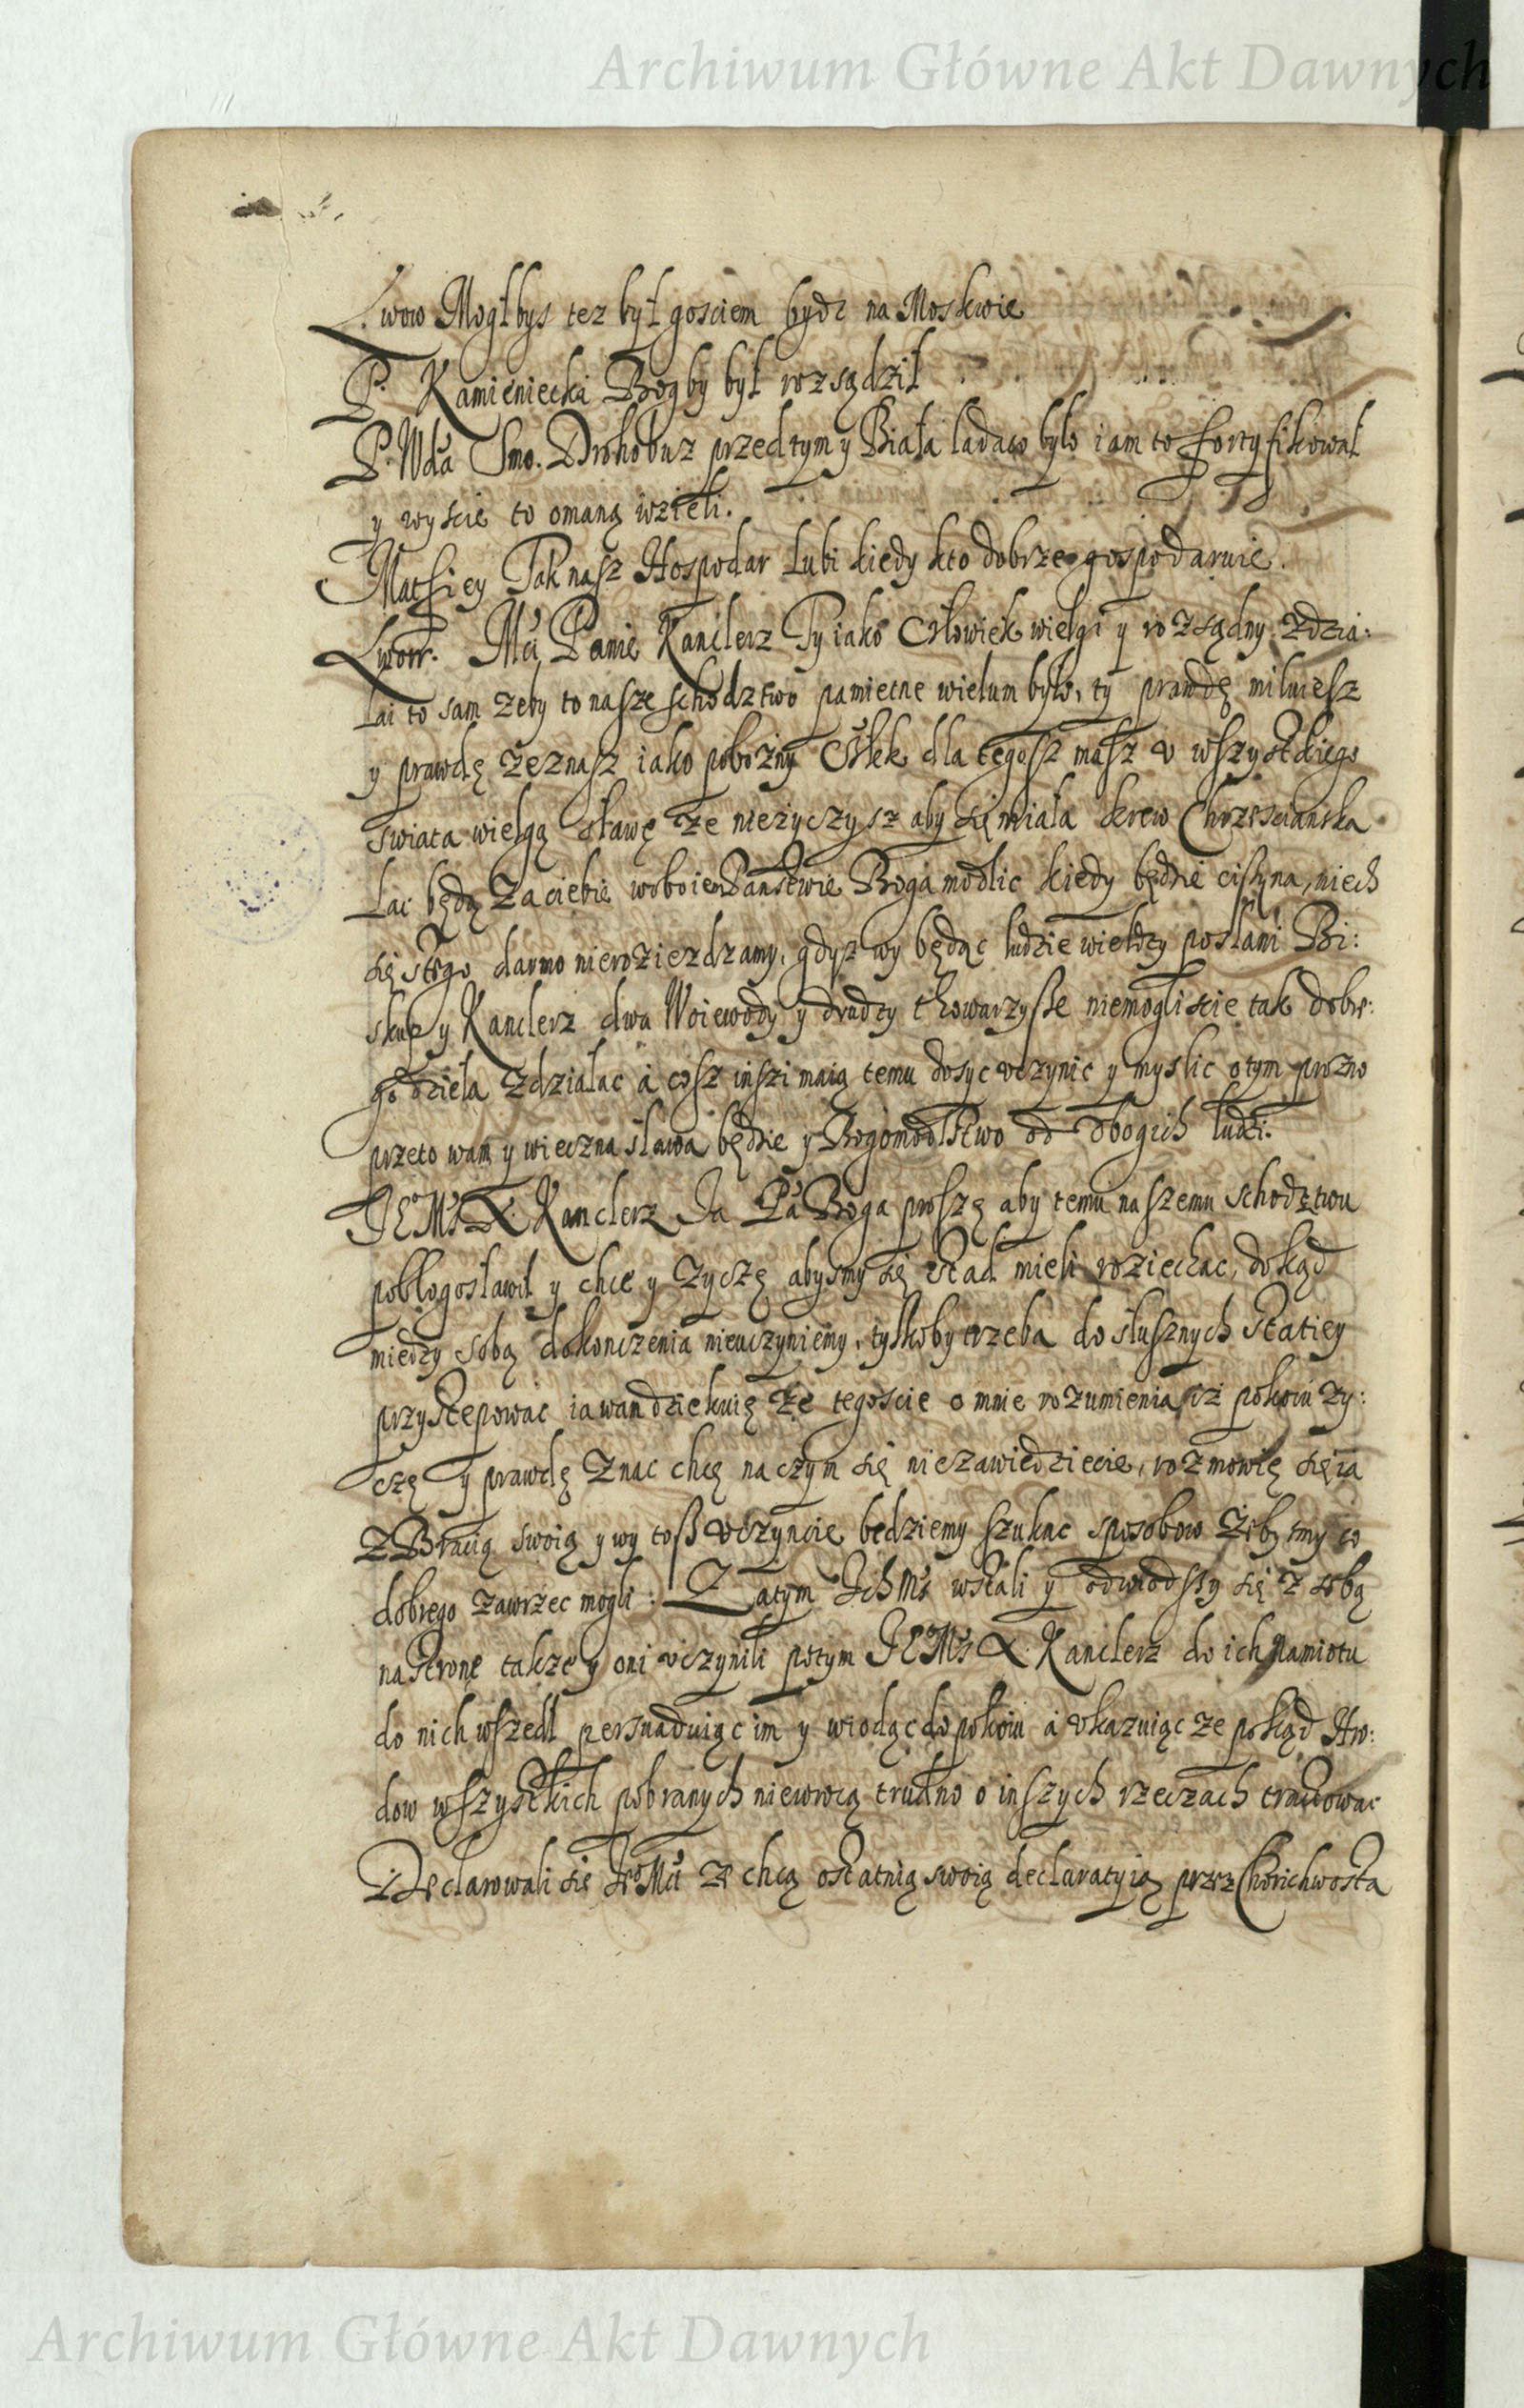 Archiwum Główne Akt Dawnych
Lwow Mogłbys tez był gosciem bydz na Moskwie
P. Kamieniecki Bog by był rozsądził
P. Wda Smo. Drohobuz przedtym y Biała ladaco było iam to fortyfikował
y wyscie to omaną wzieli.
Matfiey Tak nasz Hospodar Lubi kiedy kto dobrze gospodaruie.
Lwow. Mci Panie Kanclerz Ty iako Człowiek wielgi y rozsądny zdzia:
Lai to sam zeby to nasze schodztwo pamietne wielum było, ty prawdę miłuiesz
y prawdę zeznasz iako pobożny Człek dla tegosz masz v wszystkiego
swiata wielgą sławę ze nieżyczysz aby się miała krew Chrzescianska
Lac będą za ciebie woboiem Panstwie Boga modlic kiedy będzie ciszyna, niech
się stego darmo nieroziezdzamy, gdysz wy będąc ludzie wieldzy posłami Bi:
skup y Kanclerz dwa Woiewody y drudzy thowarzysze niemogliscie tak dobre:
go dzieła zdziałac á cosz inszi maią temu dosyc vczynic y myslic otym prozno
przeto wam y wieczna sława będzie y Bogomodlstwo od vbogich ludzi.
JEMść X. Kanclerz Ia Pá Boga proszę aby temu naszemu schodztwu
pobłogosławił y chcę y zyczę abysmy się stad mieli roziechac, dokąd
miedzy sobą dokonczenia nieuczyniemy, tylkoby trzeba do słusznych statiey
przystepowac ia wam dziekuię że tegoscie o mnie rozumienia iż pokoiu zy:
czę y prawdę znac chcę na czym się niezawiedziecie, rozmowię się ia
z Bracią swoią y wy tosz vczyncie będziemy szukac sposobow żebysmy co
dobrego zawrzec mogli: Zatym Ich Mść wstali y odwiodszy się z sobą
na stronę takze y oni vczynili potym JEMść X. Kanclerz do ich Namiotu
do nich wszedł persuaduiąc im y wiodąc do pokoiu á vkazuiąc ze pokąd Hro:
dow wszystkich pobranych niewrocą trudno o inszych rzeczach tractowac
Declarowali się Ieo Mci ze chcą ostatnią swoią declaratyią przez Chorichwosta
Archiwum Główne Akt Dawnych